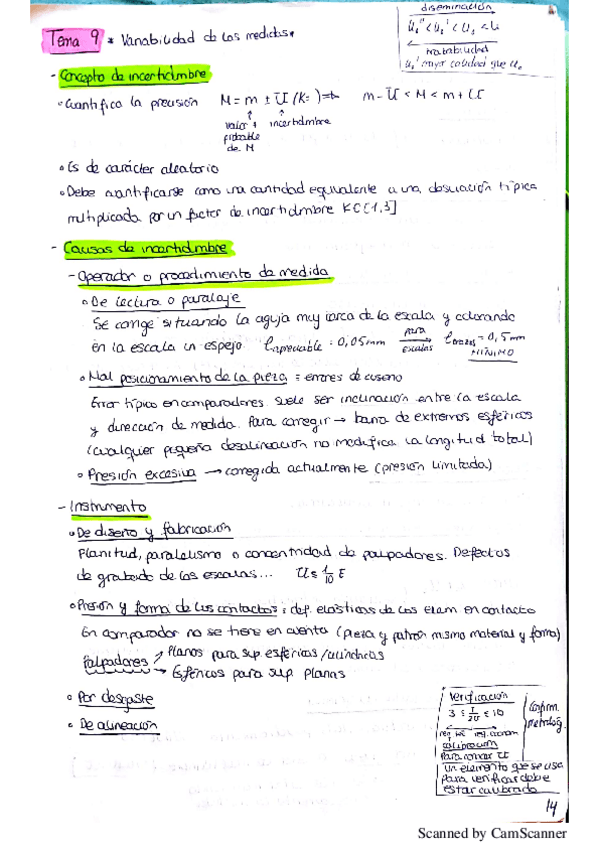 diseminación
U₀⁰ < U₀' < U₃ < U
trazabilidad
U₀' mayor calidad que U₀
Tema 9 * Variabilidad de las medidas *
- Concepto de incertidumbre
· Cuantifica la precisión M = m ± U (K= ) m - U < M < m + U
valor + probable de M
incertidumbre
· Es de carácter aleatorio
· Debe cuantificarse como una cantidad equivalente a una desviación típica
multiplicada por un factor de incertidumbre K∈[1,3]
- Causas de incertidumbre
- Operador o procedimiento de medida
· De lectura o paralaje
Se corrige situando la aguja muy cerca de la escala y colocando
en la escala un espejo. eapreciable = 0,05mm para escalas = 0,5mm
MÍNIMO
· Mal posicionamiento de la pieza = errores de coseno
Error típico en comparadores suele ser inclinación entre la escala
y dirección de medida. Para corregir → barra de extremos esféricos
(cualquier pequeña desalineación no modifica la longitud total)
· Presión excesiva → corregida actualmente (presión limitada)
- Instrumento
· De diseño y fabricación
Planitud, paralelismo o concentricidad de palpadores. Defectos
de grabado de las escalas... U ≤ 1/10 E
· Presión y forma de los contactos: def. elásticas de los elem en contacto
En comparador no se tiene en cuenta (pieza y patrón mismo material y forma)
Palpadores → Planos para sup. esféricas/cilíndricas
→ Esféricos para sup. planas
· Por desgaste
· De alineación
Verificación
3 ≤ T/2U ≤ 10
calibración
para conocer U
un elemento que se usa
para verificar debe
estar calibrado
Confirm.
metrológ.
14
Scanned by CamScanner